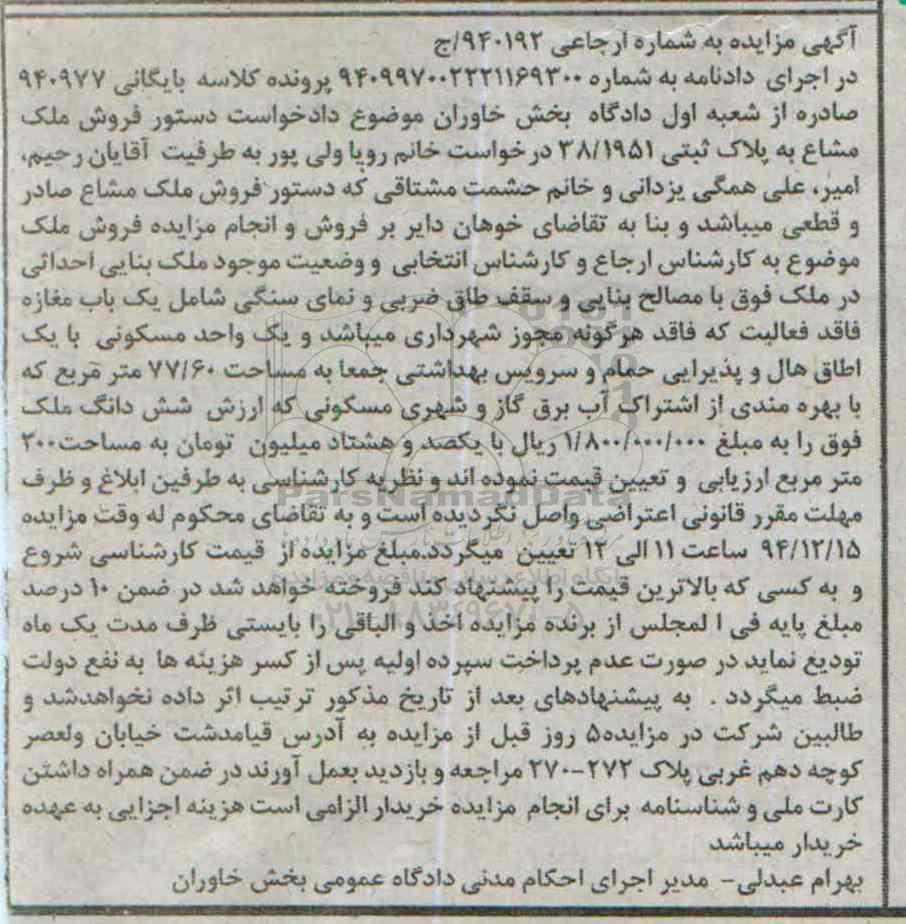 آگهی مزایده به شماره ارجاعی ۹۴۰۱۹۲/ج
در اجرای دادنامه به شماره ۹۴۰۹۹۷۰۰۲۲۲۱۱۶۹۳۰۰ پرونده کلاسه بایگانی ۹۴۰۹۷۷
صادره از شعبه اول دادگاه بخش خاوران موضوع دادخواست دستور فروش ملک
مشاع به پلاک ثبتی ۳۸/۱۹۵۱ درخواست خانم رویا ولی پور به طرفیت آقایان رحیم،
امیر، علی همگی یزدانی و خانم حشمت مشتاقی که دستور فروش ملک مشاع صادر
و قطعی میباشد و بنا به تقاضای خوهان دایر بر فروش و انجام مزایده فروش ملک
موضوع به کارشناس ارجاع و کارشناس انتخابی و وضعیت موجود ملک بنایی احداثی
در ملک فوق با مصالح بنایی و سقف طاق ضربی و نمای سنگی شامل یک باب مغازه
فاقد فعالیت که فاقد هرگونه مجوز شهرداری میباشد و یک واحد مسکونی با یک
اطاق هال و پذیرایی حمام و سرویس بهداشتی جمعا به مساحت ۷۷/۶۰ متر مربع که
با بهره مندی از اشتراک آب برق گاز و شهری مسکونی که ارزش شش دانگ ملک
فوق را به مبلغ ۱/۸۰۰/۰۰۰/۰۰۰ ریال با یکصد و هشتاد میلیون تومان به مساحت ۲۰۰
متر مربع ارزیابی و تعیین قیمت نموده اند و نظریه کارشناسی به طرفین ابلاغ و ظرف
مهلت مقرر قانونی اعتراضی واصل نگردیده است و به تقاضای محکوم له وقت مزایده
۹۴/۱۲/۱۵ ساعت ۱۱ الی ۱۲ تعیین میگردد.مبلغ مزایده از قیمت کارشناسی شروع
و به کسی که بالاترین قیمت را پیشنهاد کند فروخته خواهد شد در ضمن ۱۰ درصد
مبلغ پایه فی ا لمجلس از برنده مزایده اخذ و الباقی را بایستی ظرف مدت یک ماه
تودیع نماید در صورت عدم پرداخت سپرده اولیه پس از کسر هزینه ها به نفع دولت
ضبط میگردد . به پیشنهادهای بعد از تاریخ مذکور ترتیب اثر داده نخواهدشد و
طالبین شرکت در مزایده۵ روز قبل از مزایده به آدرس قیامدشت خیابان ولعصر
کوچه دهم غربی پلاک ۲۷۲-۲۷۰ مراجعه و بازدید بعمل آورند در ضمن همراه داشتن
کارت ملی و شناسنامه برای انجام مزایده خریدار الزامی است هزینه اجرایی به عهده
خریدار میباشد
بهرام عبدلی- مدیر اجرای احکام مدنی دادگاه عمومی بخش خاوران
ParsNamadData